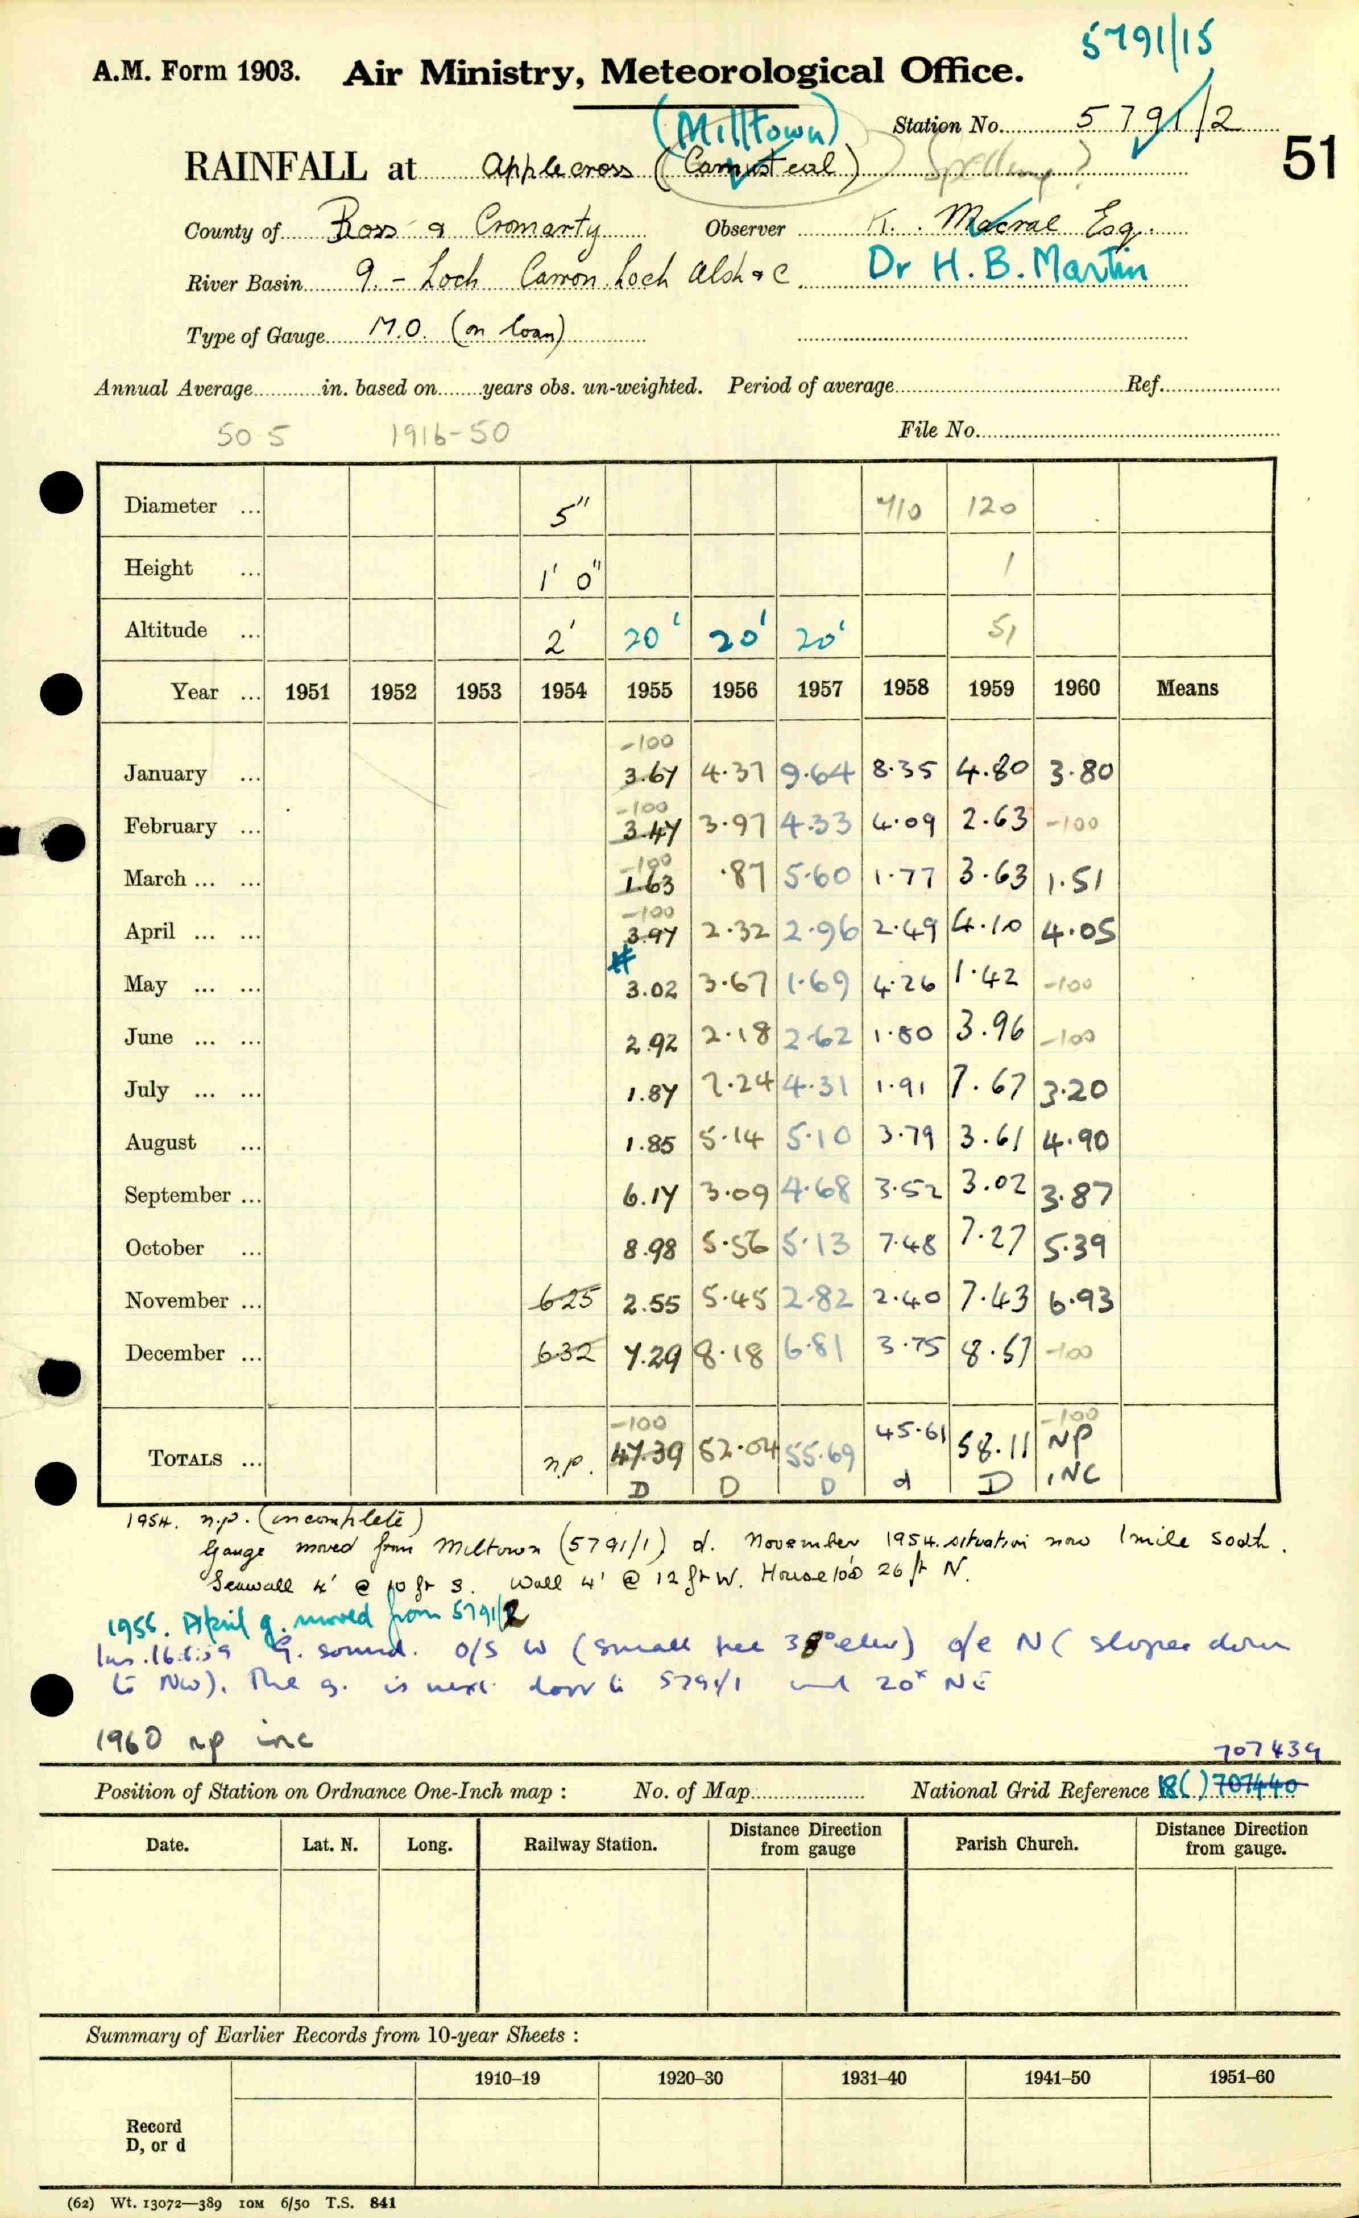 5791/15
A.M. Form 1903. Air Ministry, Meteorological Office.
(Milltown) Station No. 5791/2
RAINFALL at Applecross (Camusteal) Spelling? 51
County of Ross & Cromarty Observer K. Macrae Esq.
River Basin 9. - Loch Carron, Loch Alsh & C Dr H.B. Martin
Type of Gauge M.O. (on loan)
Annual Average in. based on years obs. un-weighted. Period of average Ref.
50 5 1916-50 File No.
Diameter ... 5" 710 120
Height ... 1' 0" 1
Altitude ... 2' 20' 20' 20' 51
Year ... 1951 1952 1953 1954 1955 1956 1957 1958 1959 1960 Means
-100
January ... 3.67 4.37 9.64 8.35 4.80 3.80
-100
February ... 3.47 3.97 4.33 4.09 2.63 -100
-100
March ... ... 1.63 .87 5.60 1.77 3.63 1.51
-100
April ... ... 3.97 2.32 2.96 2.49 4.10 4.05
May ... ... 3.02 3.67 1.69 4.26 1.42 -100
June ... ... 2.92 2.18 2.62 1.80 3.96 -100
July ... ... 1.87 7.24 4.31 1.91 7.67 3.20
August ... 1.85 5.14 5.10 3.79 3.61 4.90
September ... 6.17 3.09 4.68 3.52 3.02 3.87
October ... 8.98 5.56 5.13 7.48 7.27 5.39
November ... 6.25 2.55 5.45 2.82 2.40 7.43 6.93
December ... 6.32 7.29 8.18 6.81 3.75 8.57 -100
-100 -100
TOTALS ... n.p. 47.39 52.04 55.69 45.61 58.11 NP
D D D d D INC
1954. n.p. (incomplete)
Gauge moved from Miltown (5791/1) d. November 1954. situation now 1 mile South.
Seawall 4' @ 10 ft S. Wall 4' @ 12 ft W. House 26 ft N.
1955. April g. moved from 5791/2
Ins. 16.6.59 G. sound. O/S W (small tree 38° elev) o/e N (slopes down
to NW). The g. is next door to 5791/1 and 20* NE
1960 np inc
707439
Position of Station on Ordnance One-Inch map : No. of Map National Grid Reference 18( ) 707440
Date. Lat. N. Long. Railway Station. Distance Direction from gauge Parish Church. Distance Direction from gauge.
Summary of Earlier Records from 10-year Sheets :
1910–19 1920–30 1931–40 1941–50 1951–60
Record
D, or d
(62) Wt. 13072—389 10M 6/50 T.S. 841